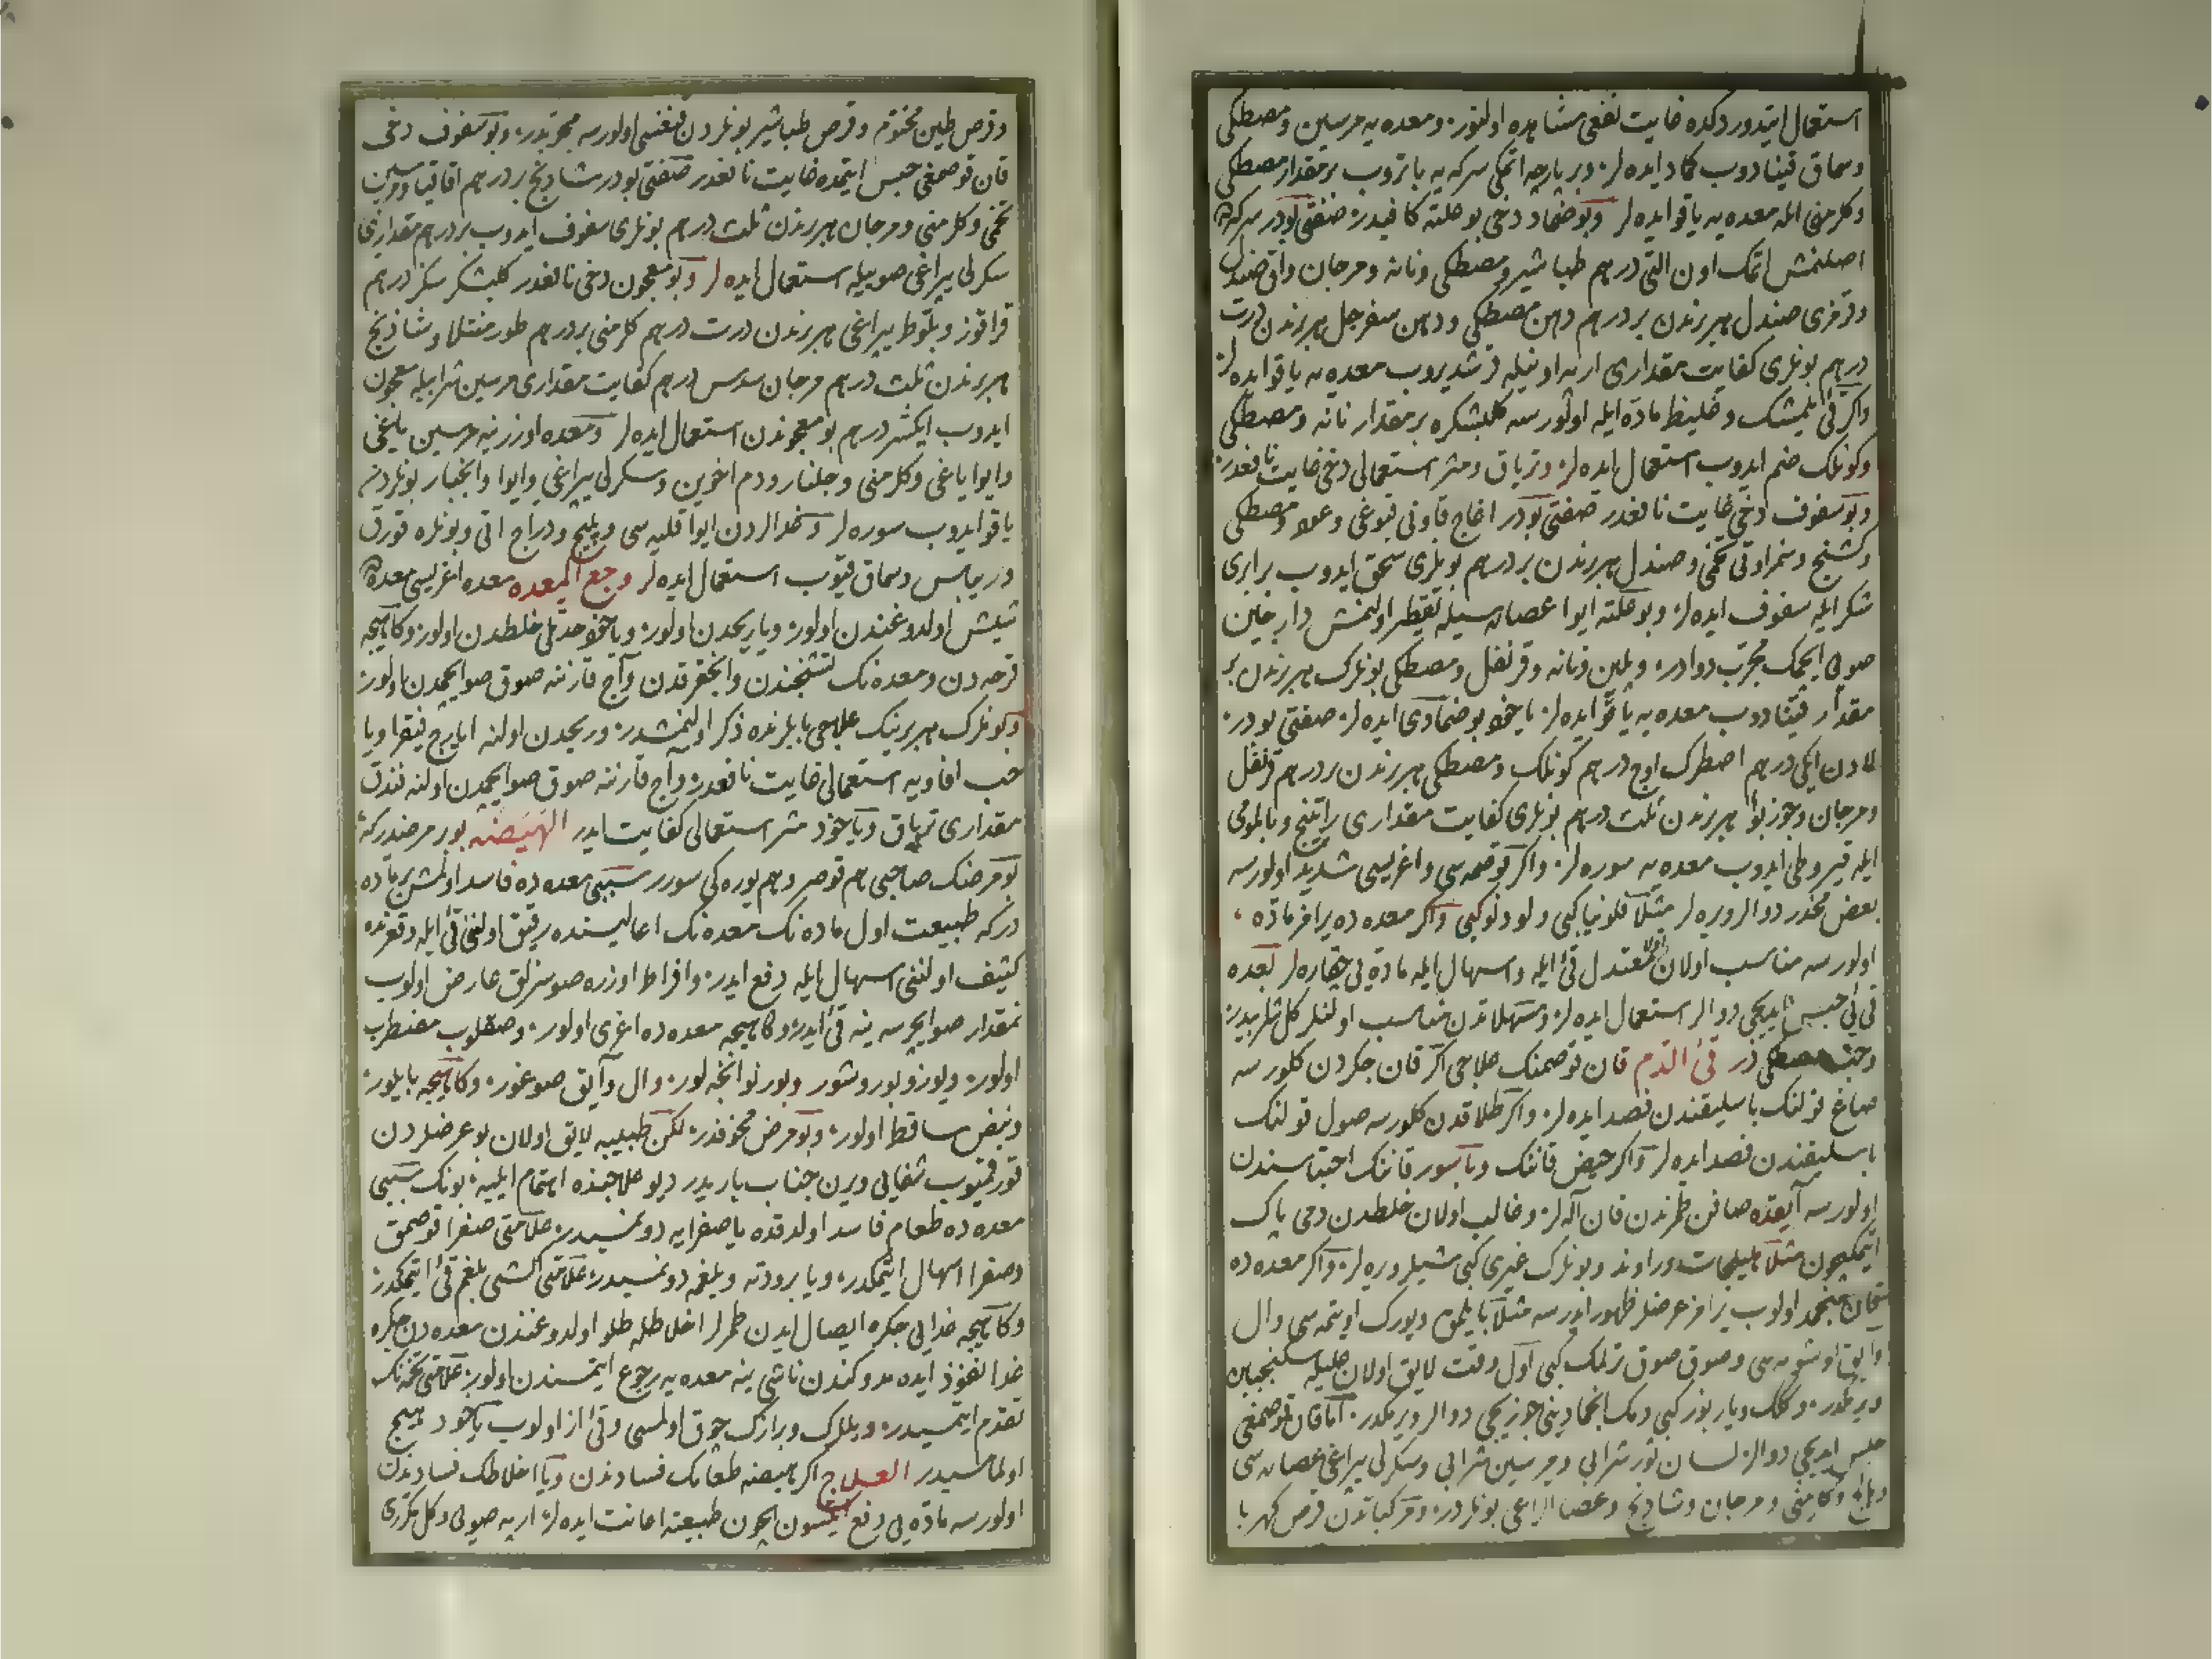 استعمال ایتدوردکده غایت نفعی مشاهده اولنور و معده یه مرسین و مصطکی
و سماق قینادوب کماد ایده لر و بر پارچه اتمکی سرکه یه باتروب بر مقدار مصطکی
و کلرمنی ایله معده یه یاقو ایده لر و بو ضماد دخی بو علته کافیدر صفتی بودر سرکه ده
اصلنمش اتمک اون التی درهم طباشیر و مصطکی و نانه و مرجان و اق صندل
و قرمزی صندل هر برندن بر درهم دهن مصطکی و دهن سفرجل هر برندن درت
درهم بونلری کفایت مقداری ارپه اونیله قرشدیروب معده یه یاقو ایده لر
و اکر قئ یلمشک و غلیظ ماده ایله اولورسه کلبشکره بر مقدار نانه و مصطکی
و کونلک ضم ایدوب استعمال ایده لر و تریاق و مثر استعمالی دخی غایت نافعدر
و بو سفوف دخی غایت نافعدر صفتی بودر اغاج قاونی قبوغی و عود و مصطکی
و کشنج و سمزاوتی تخمی و صندل هر برندن بر درهم بونلری سحق ایدوب برابری
شکر ایله سفوف ایده لر و بو علته ایوا عصاره سیله تقطیر اولنمش دارچین
صویی ایچمک مجرب دوادر و یلمین و نانه و قرنفل و مصطکی بونلرک هر برندن بر
مقدار قینادوب معده یه یاقو ایده لر یاخود بو ضمادی ایده لر صفتی بودر
لادن ایکی درهم اصطرک اوچ درهم کونلک و مصطکی هر برندن بر درهم قرنفل
و مرجان و جوز بوا هر برندن ثلث درهم بونلری کفایت مقداری راتینج و بالمومی
ایله قیروطی ایدوب معده یه سوره لر و اکر قوصمه سی و اغریسی شدید اولورسه
بعض مخدر دوالر ویره لر مثلا فلونیا کبی و لودنو کبی و اکر معده ده یرامز ماده
اولورسه مناسب اولان اولا معتدل قئ ایله و اسهال ایله ماده یی چقاره لر بعده
قئ یی حبس ایدیجی دوالر استعمال ایده لر و مسهلاتدن مناسب اولنلر کل شلربیدر
و حب مصطکی در قئ الدم قان قوصمنک علاجی اکر قان جکردن کلورسه
صاغ قولنک باسلیقندن فصد ایده لر و اکر طلاقدن کلورسه صول قولنک
باسلیقندن فصد ایده لر و اکر حیض قاننک و باسور قاننک احتباسندن
اولورسه آیقده صافن طمرندن قان آله لر و غالب اولان خلطدن دخی پاک
ایتمکیچون مثلا هلیلجات و راوند و بونلرک غیری کبی شیلر ویره لر و اکر معده ده
قان منجمد اولوب یرامز عرضلر ظهور ایدرسه مثلا بایلمق و یورک اوینمه سی و ال
و ایق اوشومه سی و صوق صوق ترلمک کبی اول وقت لایق اولان سکنجبین
ویرمکدر و کلک و پاربوز کبی دمک انجمادینی چوزیجی دوالر ویرمکدر اما قان قوصمغی
حبس ایدیجی دوالر لسان ثور شرابی و مرسین شرابی و سکرلی یپراغی عصاره سی
و کلرمنی و مرجان و شادنج و عصا الراعی بونلردر و مرکباتدن قرص کهربا
و قرص طین مختوم و قرص طباشیر بونلردن قنغسی اولورسه مجربدر و بو سفوف دخی
قان قوصمغی حبس ایتمده غایت نافعدر صفتی بودر شادنج بر درهم اقاقیا و مرسین
تخمی و کلرمنی و مرجان هر برندن ثلث درهم بونلری سفوف ایدوب بر درهم مقدارینی
سکرلی یپراغی صوییله استعمال ایده لر و بو معجون دخی نافعدر کلبشکر سکز درهم
قراقوز و بلوط یپراغی هر برندن درت درهم کلرمنی بر درهم طورمنتلا و شادنج
هر برندن ثلث درهم مرجان سدس درهم کفایت مقداری مرسین شرابیله معجون
ایدوب ایکیشر درهم بو معجوندن استعمال ایده لر و معده اوزرینه مرسین یاغی
و ایوا یاغی و کلرمنی و جلنار و دم اخوین و سکرلی یپراغی و ایوا و انجبار بونلردن
یاقو ایدوب سوره لر و غدالردن ایوا قلیه سی و پلیچ و دراج اتی و بونلره قورق
و ریباس و سماق قیوب استعمال ایده لر وجع المعده معده اغریسی معده ده
شیش اولدوغندن اولور و یا ریحدن اولور و یاخود حدتلی خلطدن اولور و کاهیجه
قرحه دن و معده نک تشنجندن و انجقرقدن و آج قارننه صوق صو ایچمدن اولور
و بونلرک هر برینک علاجی بابلرنده ذکر اولنمشدر و ریحدن اولنه ایارج فیقرا و یا
حب افاویه استعمالی غایت نافعدر و آج قارننه صوق صو ایچمدن اولنه فندق
مقداری تریاق و یاخود مثر استعمالی کفایت ایدر الهیضه بو بر مرضدرکه
بو مرضک صاحبی هم قوصر و هم یوره کی سورر سببی معده ده فاسد اولمش بر ماده
درکه طبیعت اول ماده نک معده نک اعالیسنده رقیق اولننی قئ ایله و قعرنده
کثیف اولننی اسهال ایله دفع ایدر و افراط اوزره صوسزلق عارض اولوب
نمقدار صو ایچرسه ینه قئ ایدر و کاهیجه معده ده اغری اولور و صقلوب مضطرب
اولور و یوزو بوروشور و بورنو انجه لور و ال و آیق صوغور و کاهیجه بایلور
و نبض ساقط اولور و بو مرض مخوفدر لکن طبیبه لایق اولان بو عرضلردن
قورقمیوب شفایی ویرن جناب باریدر دیو علاجنده اهتمام ایلیه بونک سببی
معده ده طعام فاسد اولدقده یا صفرایه دونمسیدر علامتی صفرا قوصمق
و صفرا اسهال ایتمکدر و یا برودته و بلغمه دونمسیدر علامتی اکشی بلغم قئ ایتمکدر
و کاهیجه غدایی جکره ایصال ایدن طمرلر اخلاطله طلو اولدوغندن معده دن جکره
غدا نفوذ ایده مدوکندن ناشی ینه معده یه رجوع ایتمسندن اولور علامتی تخمه نک
تقدم ایتمسیدر و یللرک و برازک چوق اولمسی و قئ از اولوب یاخود هیچ
اولمامسیدر العلاج اکر هیضه طعامک فسادندن و یا اخلاطک فسادندن
اولورسه ماده یی دفع ایتمسون ایچون طبیعته اعانت ایده لر ارپه صویی و کل مکرری